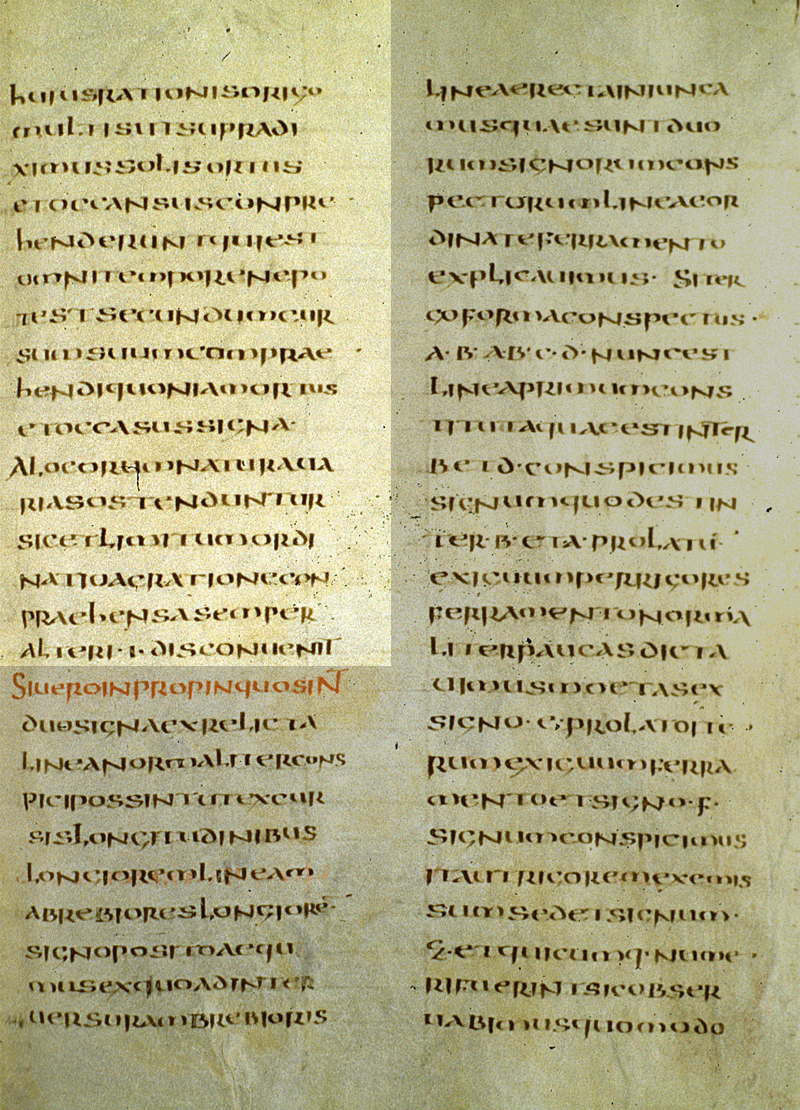 huiusrationisorigo
multisutsupradi
ximussolisortus
etoccansusconpre·
henderuntquiest
omnitemporenepo
testsecundumcur
sumsuumcomprae
hendiquoniamortus
etoccasussigna·
alocorumnaturaua
riasostenduntur
sicetlimitumordi
natiuoaerationecon
praehensasemper
alteri·i·disconuenit
Siueroinpropinquosint
duosignaexrelicta
lineanormalitercons
picipossintutexcur
sislongitudinibus
longioremlineam
abrebioreslongiore·
signopostmaequ
musexquoadinter
uersurambrebioris
lineaerectainiunca
musquaesuntduo
rumsignorumcons
pectorumlineacor
dinateferramento
explicauimus· Siter
coformaconspectus·
A·B·AB·c·d·nuncest
lineaprimumcons
titutaquaeestinter
B·etd·conspicimus
signumquodestin
ter·B·etA·prolati·
exiguumperrigores
ferramentonorma
literpaucasdicta
uimusmoetasex
signo·c·prolatoite·
rumexiguumferra
mentoetsigno·f·
signumconspicimus
itautrigoremexemis
sumsedetsignum·
g·etquicumq·nume·
rifuerintsicobser
uabimusquomodo